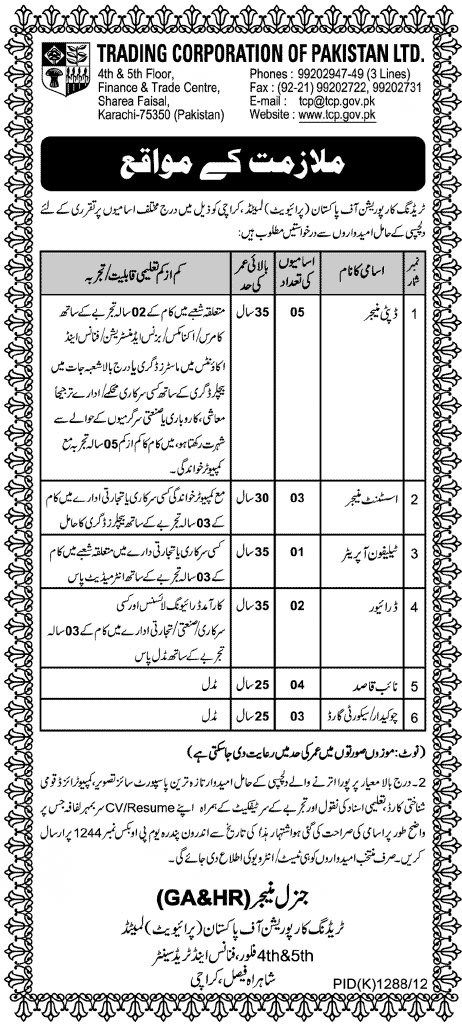 TRADING CORPORATION OF PAKISTAN LTD.
4th & 5th Floor,
Finance & Trade Centre,
Sharea Faisal,
Karachi-75350 (Pakistan)
Phones : 99202947-49 (3 Lines)
Fax : (92-21) 99202722, 99202731
E-mail : tcp@tcp.gov.pk
Website : www.tcp.gov.pk
ملازمت کے مواقع
ٹریڈنگ کارپوریشن آف پاکستان (پرائیویٹ) لمیٹڈ، کراچی کو ذیل میں درج مختلف اسامیوں پر تقرری کے لئے
دلچسپی کے حامل امیدواروں سے درخواستیں مطلوب ہیں:
نمبر شمار
اسامی کا نام
اسامیوں کی تعداد
بالائی عمر کی حد
کم از کم تعلیمی قابلیت/تجربہ
1
ڈپٹی منیجر
05
35 سال
متعلقہ شعبے میں کام کے 02 سالہ تجربے کے ساتھ
کامرس/اکنامکس/بزنس ایڈمنسٹریشن/فنانس اینڈ
اکاؤنٹس میں ماسٹرز ڈگری یا درج بالا شعبہ جات میں
بیچلر ڈگری کے ساتھ کسی سرکاری محکمے/ادارے ترجیحاً
معاشی، کاروباری یا صنعتی سرگرمیوں کے حوالے سے
شہرت رکھتا ہو، میں کام کا کم از کم 05 سالہ تجربہ مع
کمپیوٹر خواندگی۔
2
اسسٹنٹ منیجر
03
30 سال
مع کمپیوٹر خواندگی کسی سرکاری یا تجارتی ادارے میں کام
کے 03 سالہ تجربے کے ساتھ بیچلرز ڈگری کا حامل
3
ٹیلیفون آپریٹر
01
35 سال
کسی سرکاری یا تجارتی ادارے میں متعلقہ شعبے میں کام
کے 03 سالہ تجربے کے ساتھ انٹرمیڈیٹ پاس
4
ڈرائیور
02
35 سال
کارآمد ڈرائیونگ لائسنس اور کسی
سرکاری/صنعتی/تجارتی ادارے میں کام کے 03 سالہ
تجربے کے ساتھ مڈل پاس
5
نائب قاصد
04
25 سال
مڈل
6
چوکیدار/سیکورٹی گارڈ
03
25 سال
مڈل
(نوٹ: موزوں صورتوں میں عمر کی حد میں رعایت دی جاسکتی ہے)
2۔ درج بالا معیار پر پورا اترنے والے دلچسپی کے حامل امیدوار تازہ ترین پاسپورٹ سائز تصویر، کمپیوٹرائزڈ قومی
شناختی کارڈ، تعلیمی اسناد کی نقول اور تجربے کے سرٹیفکیٹ کے ہمراہ اپنے CV/Resume سربمہر لفافہ جس پر
واضح طور پر اسامی کی صراحت کی گئی ہو اشتہار ہذا کی تاریخ سے اندرون پندرہ یوم پی او بکس نمبر 1244 پر ارسال
کریں۔ صرف منتخب امیدواروں کو ہی ٹیسٹ/انٹرویو کی اطلاع دی جائے گی۔
جنرل منیجر (GA&HR)
ٹریڈنگ کارپوریشن آف پاکستان (پرائیویٹ) لمیٹڈ
4th&5th فلور، فنانس اینڈ ٹریڈ سینٹر
شاہراہ فیصل، کراچی
PID(K)1288/12